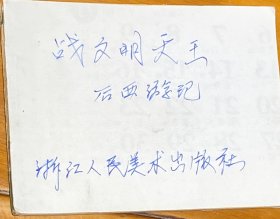 战文明天王
后西游记
浙江人民美术出版社